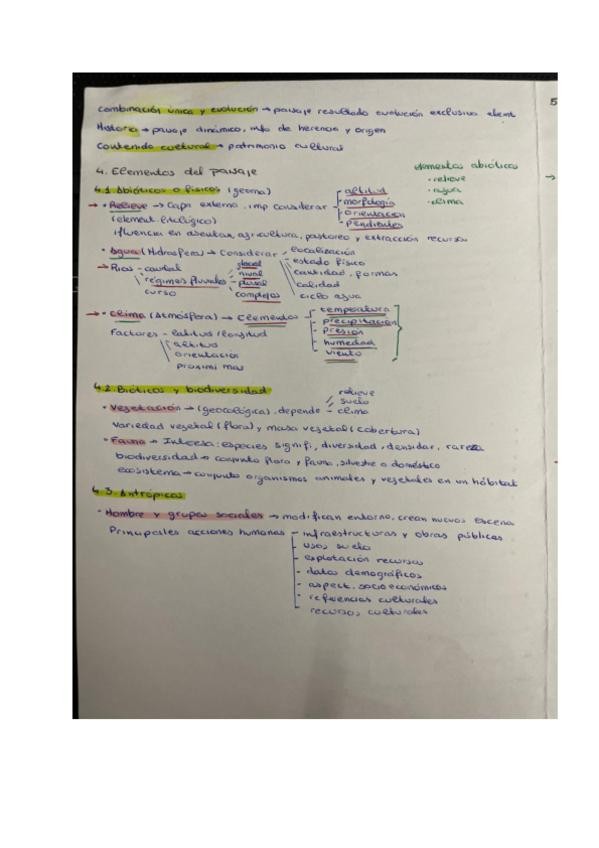 Combinación única y evolución → paisaje resultado evolución exclusiva elemt.
Historia → paisaje dinámico, mto de herencia y origen
Contenido cultural → patrimonio cultural
4. Elementos del paisaje
elementos abióticos
· relieve
· agua
· clima
4.1 Abióticos o físicos (geoma)
→ · Relieve → Capa externa, imp considerar
- altitud
- morfología
- orientación
- pendientes
(element. litológico)
influencia en asentam, agricultura, pastoreo y extracción recursos
· Agua (Hidrosfera) → Considerar
localización
estado físico
cantidad, formas
calidad
ciclo agua
→ Ríos - caudal
regimes fluviales
curso
glacial
nival
pluvial
complejos
→ · Clima (Atmósfera) → Elementos
- temperatura
- precipitación
- presión
- humedad
- viento
Factores - latitud/longitud
altitud
orientación
proximi mar
4.2. Bióticos y biodiversidad
· Vegetación → (geoecológica), depende
relieve
suelo
clima
Variedad vegetal (flora) y masa vegetal (cobertura)
· Fauna → Interesa: especies signifi, diversidad, densidad, rareza
biodiversidad → conjunto flora y fauna, silvestre o doméstico
ecosistema → conjunto organismos animales y vegetales en un hábitat
4.3. Antrópicos
· Hombre y grupos sociales → modifican entorno, crean nuevos escena
Principales acciones humanas
- infraestructuras y obras públicas
- usos suelo
- explotación recursos
- datos demográficos
- aspect. socioeconómicos
- referencias culturales
recursos culturales
5